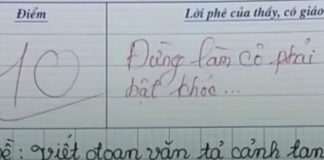 Điểm
Lời phê của thầy, cô giáo
10
Đừng làm cô phải
bật khóc...
ề: Viết đoạn văn tả cảnh tan